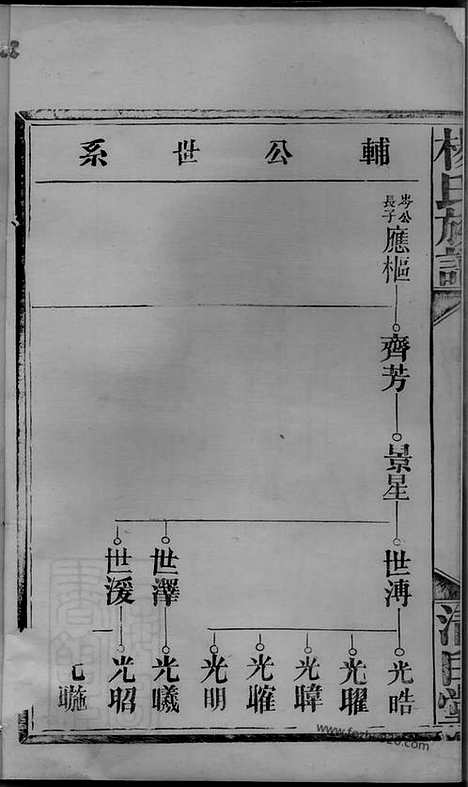 楊氏族譜
輔公世系
岑公長子
應樞
齊芳
景星
世溥
世澤
世湲
光晧
光曜
光暐
光㬢
光明
光曦
光昭
www.fezupu20.com